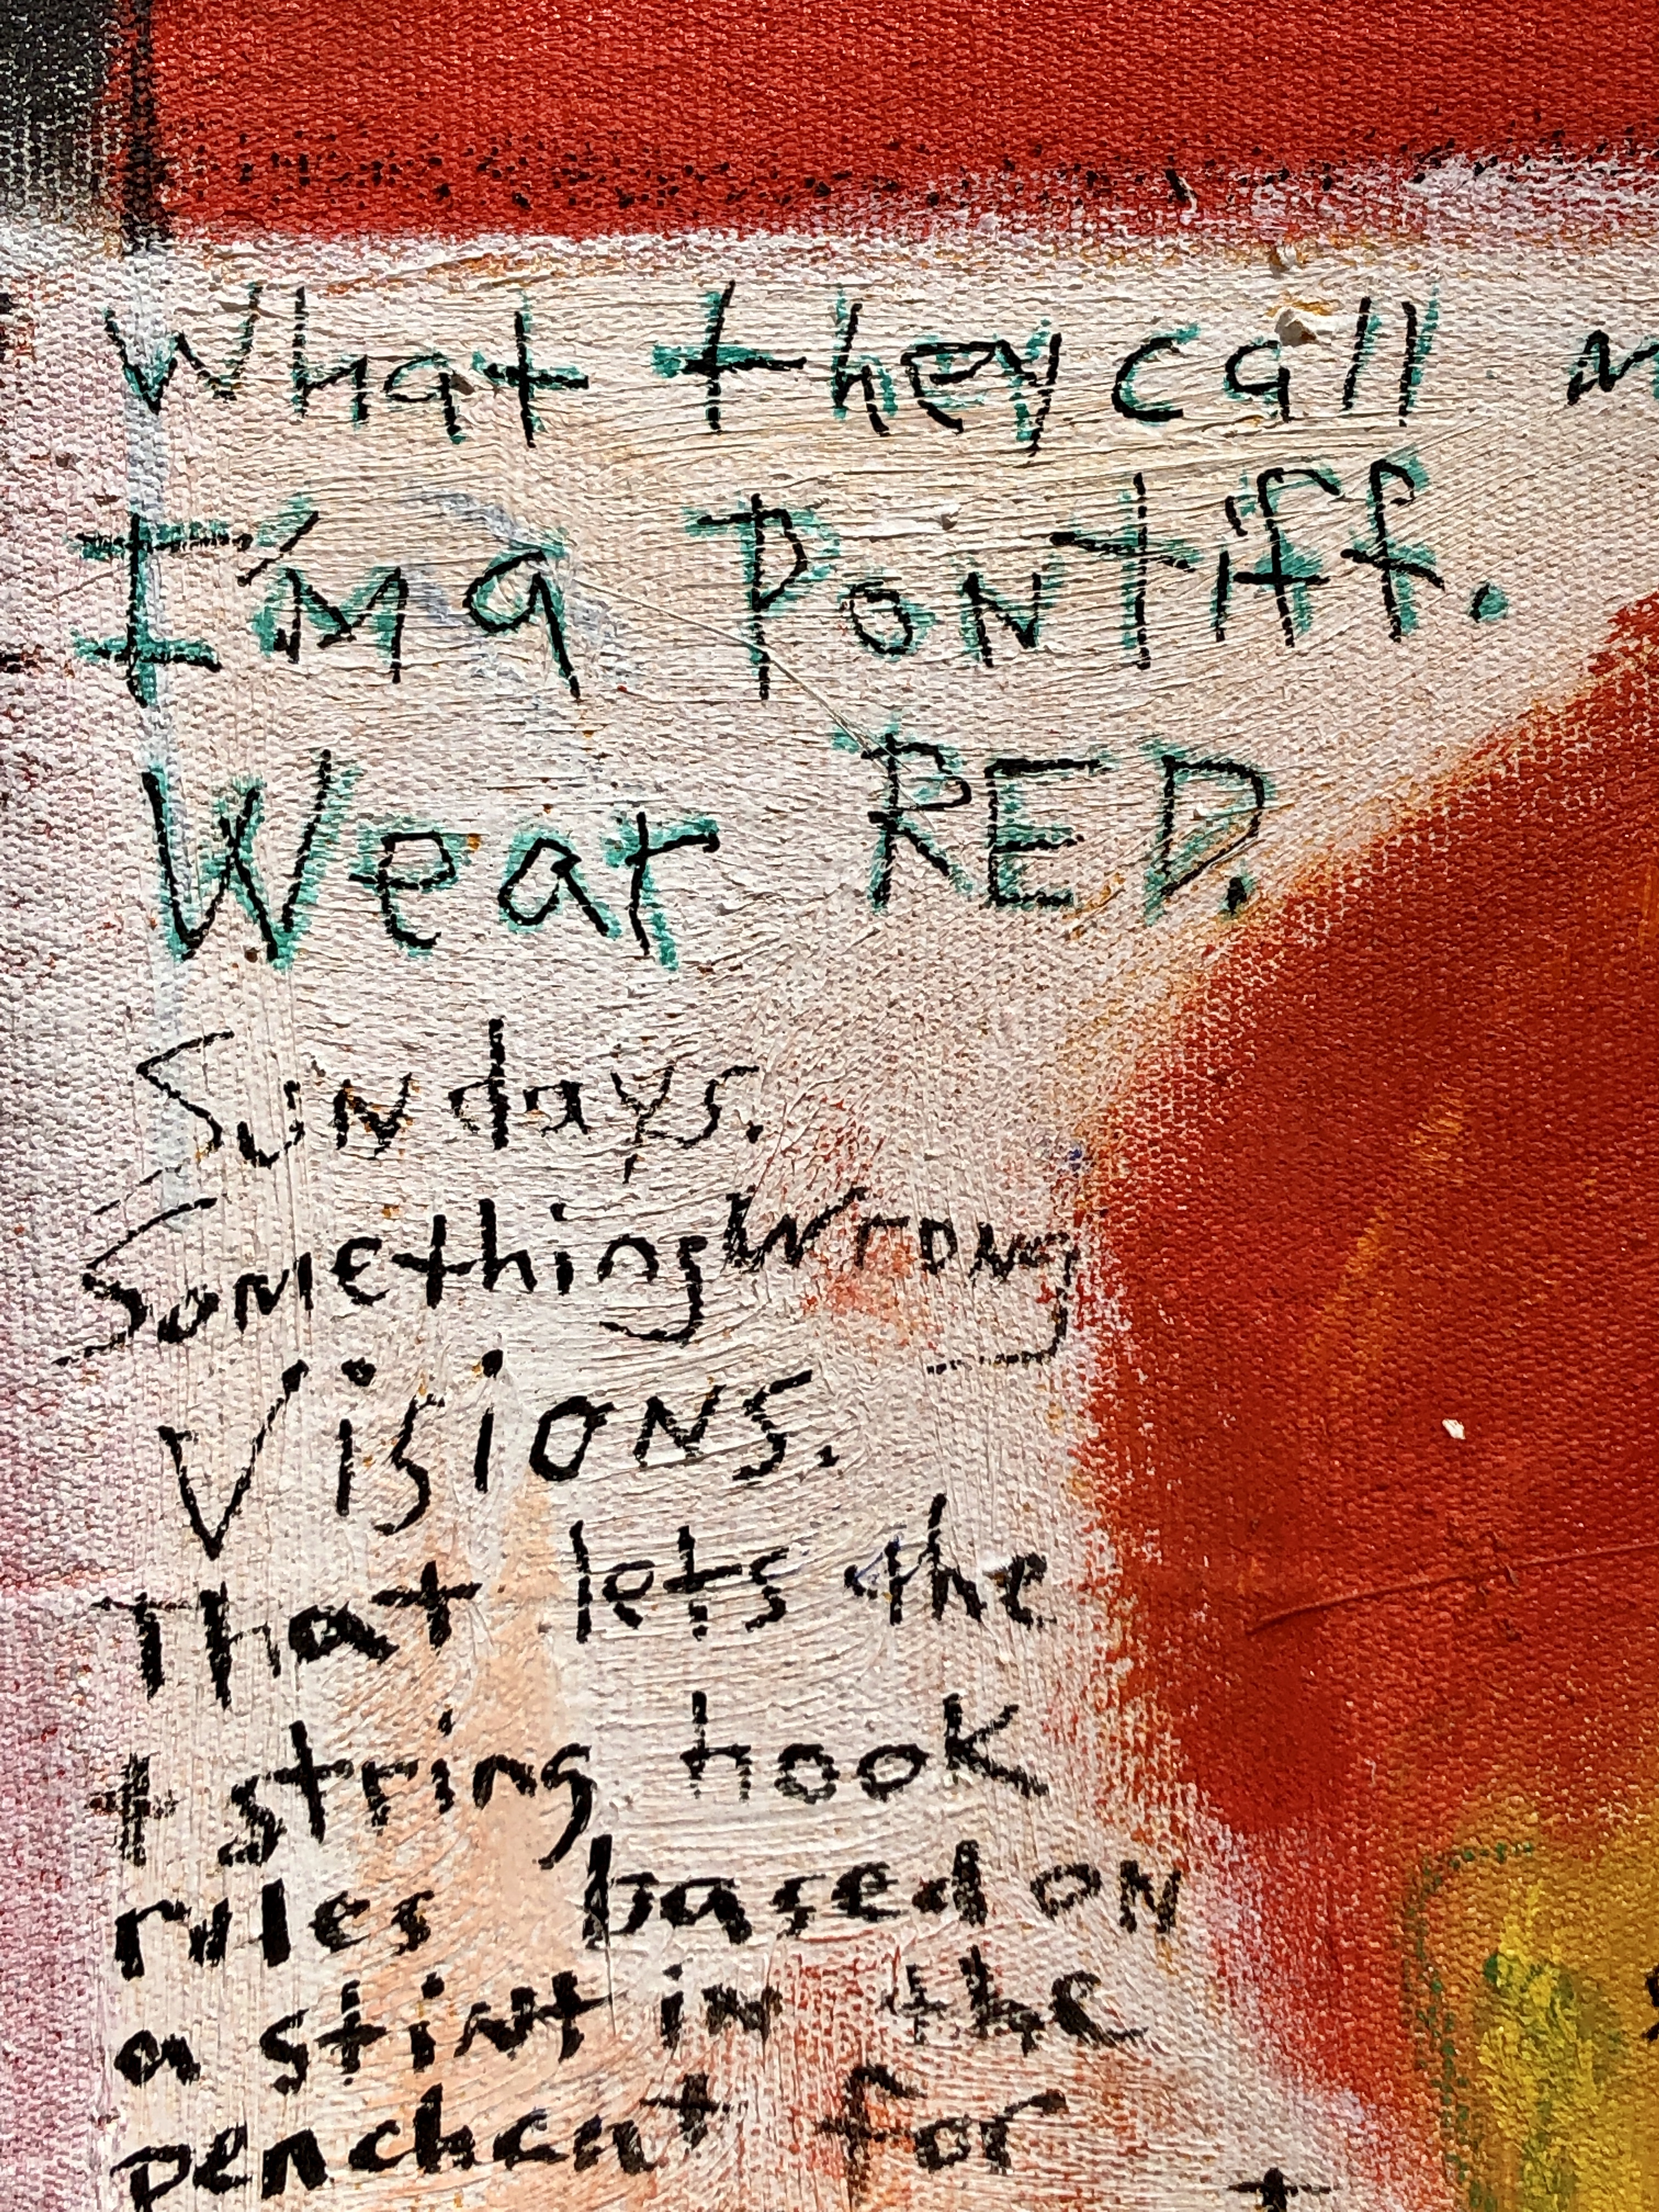 What they call
I'm a Pontiff.
Wear RED.
Sundays.
Something Wrong
Visions.
That lets the
+ string hook
rules based on
a stint in the
penchant for